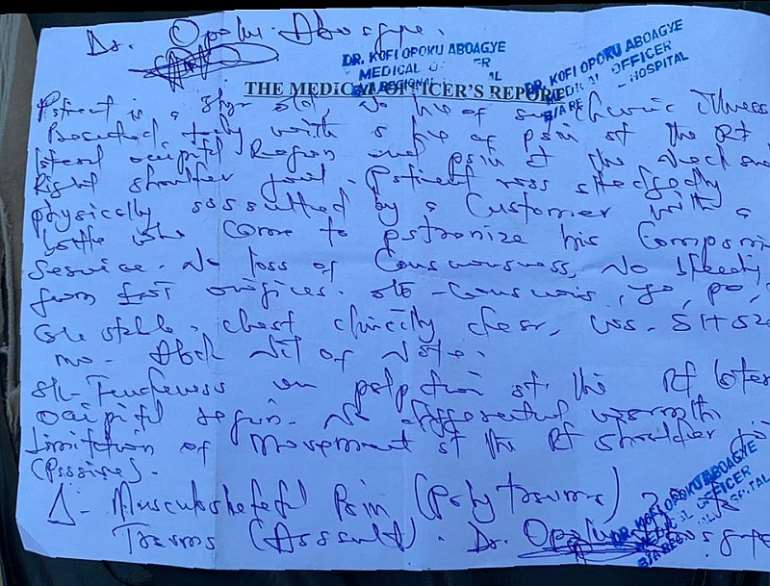 Dr. Opoku Aboagye.
DR. KOFI OPOKU ABOAGYE
MEDICAL
DR. KOFI OPOKU ABOAGYE
MEDICAL OFFICER
HOSPITAL
THE MEDICAL OFFICER'S REPORT
Patient is a old, No hx of Chronic illness
Presented today with a hx of pain at the Rt
lateral occipital Region and pain at the neck and
Right shoulder joint. Patient was allegedly
physically assaulted by a Customer with a
bottle who came to patronize his
service. No loss of Consciousness, No bleeding
from orifices. o/e - Conscious,
stable. chest clinically clear, CVS - S1+S2
mo. Abd - Nil of Note.
Tenderness on palpation at the Rt
occipital region. No differential warmth
limitation of movement at the Rt shoulder
(Passive).
Δ - Musculoskeletal Pain (Polytrauma) 2° to
Trauma (Assault). Dr. Opoku
DR. KOFI OPOKU ABOAGYE
MEDICAL OFFICER